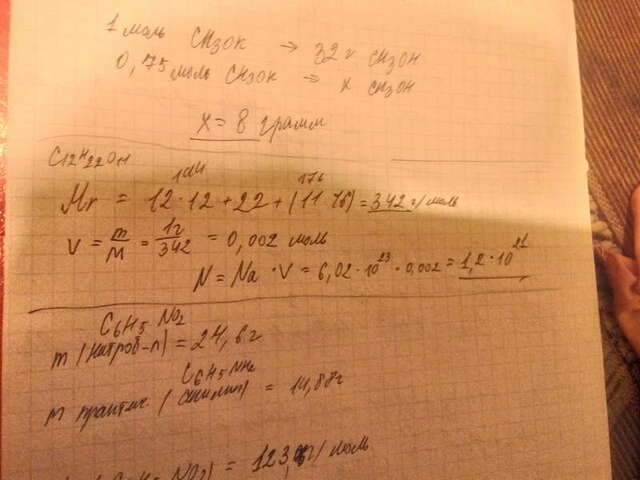 1 моль CH3OH → 32 г CH3OH
0,75 моль CH3OH → x CH3OH
x = 8 грамм
C12H22O11
144 176
Mr = 12·12 + 22 + (11·16) = 342 г/моль
V = m/M = 1г/342 = 0,002 моль
N = Na · V = 6,02·10^23 · 0,002 = 1,2·10^21
C6H5NO2
m (нитроб-л) = 24,6 г
C6H5NH2
m практич. (анилин) = 14,88г
NO2) = 123 г/моль